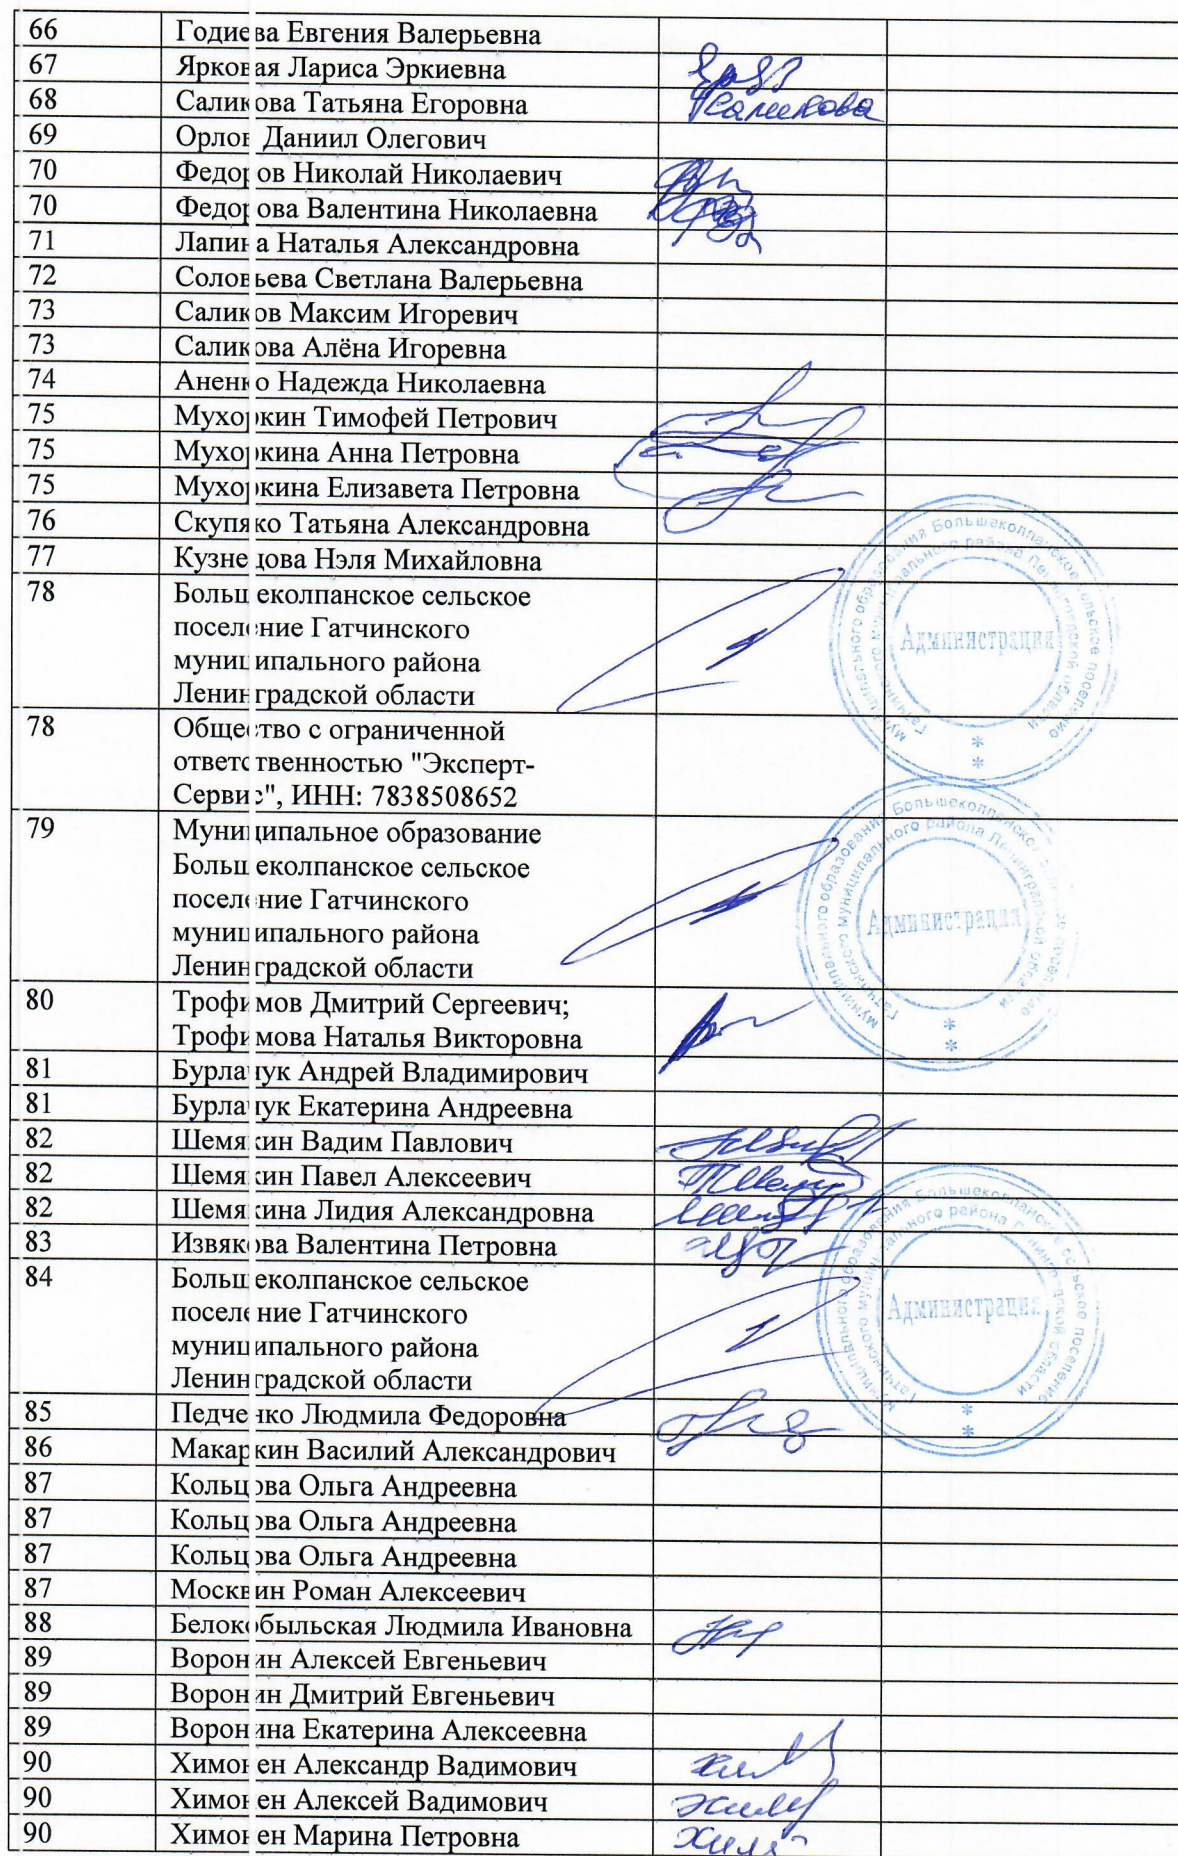 66 Годиева Евгения Валерьевна
67 Ярковая Лариса Эркиевна
68 Саликова Татьяна Егоровна
69 Орлов Даниил Олегович
70 Федоров Николай Николаевич
70 Федорова Валентина Николаевна
71 Лапина Наталья Александровна
72 Соловьева Светлана Валерьевна
73 Саликов Максим Игоревич
73 Саликова Алёна Игоревна
74 Аненко Надежда Николаевна
75 Мухоркин Тимофей Петрович
75 Мухоркина Анна Петровна
75 Мухоркина Елизавета Петровна
76 Скупяко Татьяна Александровна
77 Кузнецова Нэля Михайловна
78 Большеколпанское сельское
поселение Гатчинского
муниципального района
Ленинградской области
Администрация
78 Общество с ограниченной
ответственностью "Эксперт-
Сервис", ИНН: 7838508652
79 Муниципальное образование
Большеколпанское сельское
поселение Гатчинского
муниципального района
Ленинградской области
Администрация
80 Трофимов Дмитрий Сергеевич;
Трофимова Наталья Викторовна
81 Бурлачук Андрей Владимирович
81 Бурлачук Екатерина Андреевна
82 Шемякин Вадим Павлович
82 Шемякин Павел Алексеевич
82 Шемякина Лидия Александровна
83 Извякова Валентина Петровна
84 Большеколпанское сельское
поселение Гатчинского
муниципального района
Ленинградской области
Администрация
85 Педченко Людмила Федоровна
86 Макаркин Василий Александрович
87 Кольцова Ольга Андреевна
87 Кольцова Ольга Андреевна
87 Кольцова Ольга Андреевна
87 Москвин Роман Алексеевич
88 Белокобыльская Людмила Ивановна
89 Воронин Алексей Евгеньевич
89 Воронин Дмитрий Евгеньевич
89 Воронина Екатерина Алексеевна
90 Химонен Александр Вадимович
90 Химонен Алексей Вадимович
90 Химонен Марина Петровна